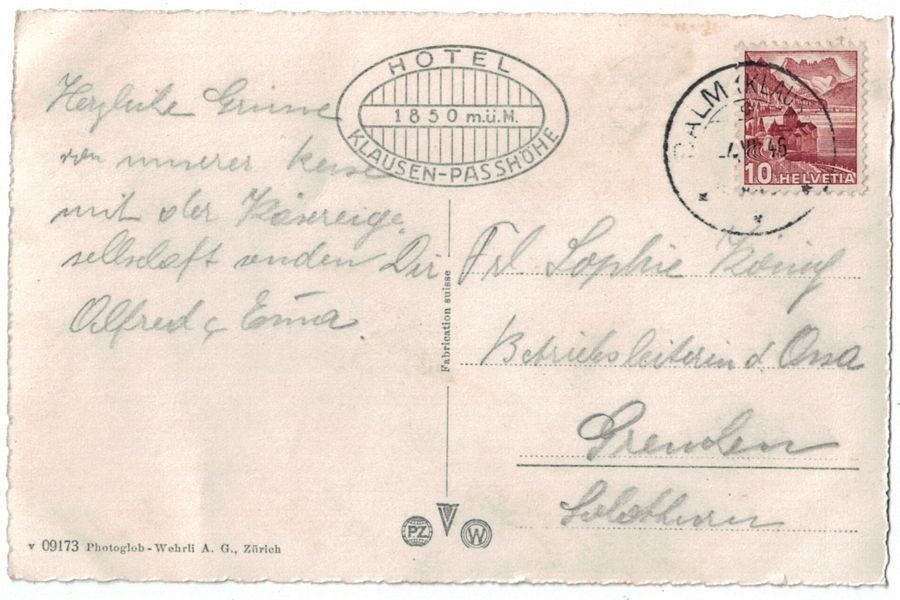 Herzliche Grüsse
von unserer Reise
mit der Käsereige-
sellschaft senden Dir
Alfred & Emma
HOTEL
1850 m.ü.M.
KLAUSEN-PASSHÖHE
BALM (KLAU
45
10 HELVETIA
Frl. Sophie König
Betriebsleiterin d. Ossa
Grenchen
Solothurn
Fabrication suisse
PZ W
v 09173 Photoglob-Wehrli A. G., Zürich